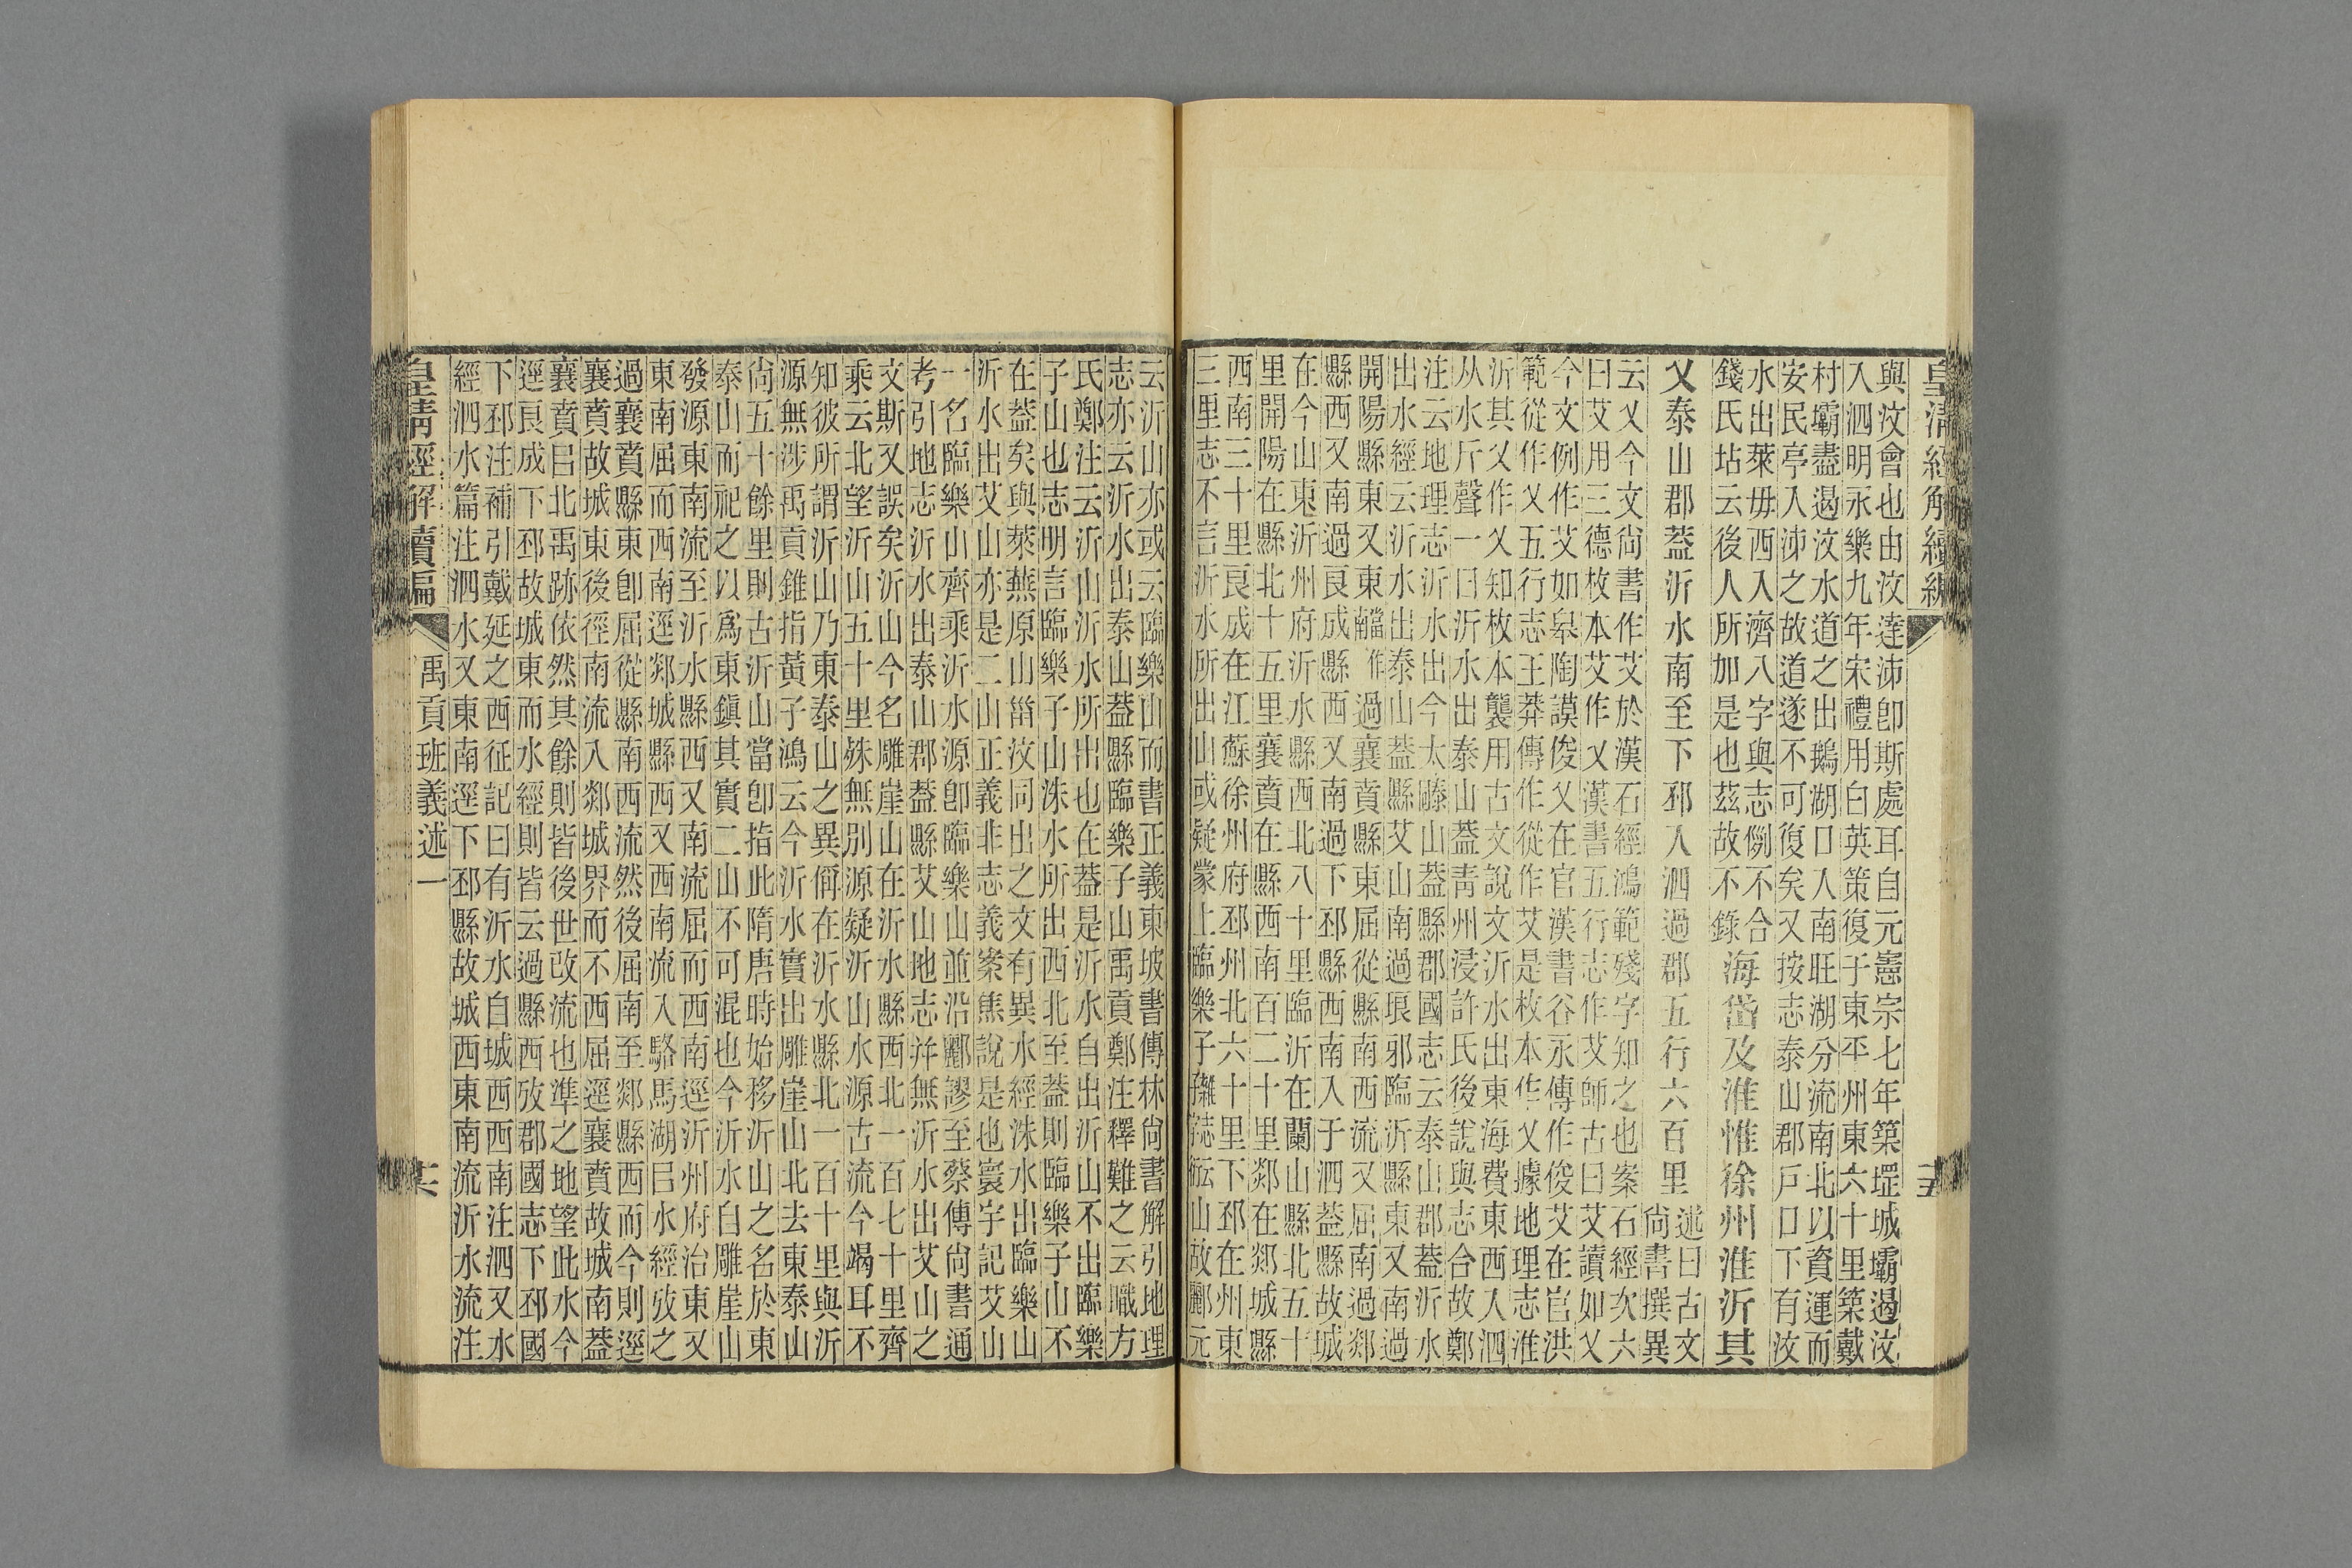 皇清經解續編
十五
與汶會也由汶達沛卽斯處耳自元憲宗七年築堽城壩遏汶
入泗明永樂九年宋禮用白英策復于東平州東六十里築戴
村壩盡遏汶水道之出鵝湖口入南旺湖分流南北以資運而
安民亭入沛之故道遂不可復矣又按志泰山郡戶口下有汶
水出萊毋西入濟八字與志例不合
錢氏坫云後人所加是也茲故不錄
海岱及淮惟徐州淮沂其
乂泰山郡蓋沂水南至下邳入泗過郡五行六百里
述曰古文
尚書撰異
云乂今文尚書作艾於漢石經鴻範殘字知之也案石經次六
曰艾用三德枚本艾作乂漢書五行志作艾師古曰艾讀如乂
今文例作艾如皋陶謨俊乂在官漢書谷永傳作俊艾在官洪
範從作乂五行志王莽傳作從作艾是枚本作乂據地理志淮
沂其乂作乂知枚本襲用古文說文沂水出東海費東西入泗
从水斤聲一曰沂水出泰山蓋青州浸許氏後說與志合故鄭
注云地理志沂水出今太山蓋縣郡國志云泰山郡蓋沂水
出水經云沂水出泰山蓋縣艾山南過琅邪臨沂縣東又南過
開陽縣東又東當作南過襄賁縣東屈從縣南西流又屈南過郯
縣西又南過良成縣西又南過下邳縣西南入于泗蓋縣故城
在今山東沂州府沂水縣西北八十里臨沂在蘭山縣北五十
里開陽在縣北十五里襄賁在縣西南百二十里郯在郯城縣
西南三十里良成在江蘇徐州府邳州北六十里下邳在州東
三里志不言沂水所出山或疑蒙上臨樂子山故酈元
云沂山亦或云臨樂山而書正義東坡書傳林尚書解引地理
志亦云沂水出泰山蓋縣臨樂子山禹貢鄭注釋難之云職方
氏鄭注云沂山沂水所出也在蓋是沂水自出沂山不出臨樂
子山也志明言臨樂子山洙水所出西北至蓋則臨樂子山不
在蓋矣與萊蕪原山甾汶同出之文有異水經洙水出臨樂山
沂水出艾山亦是二山正義非志義案焦說是也寰宇記艾山
一名臨樂山齊乘沂水源卽臨樂山並沿酈謬至蔡傳尚書通
考引地志沂水出泰山郡蓋縣艾山地志并無沂水出艾山之
文斯又誤矣沂山今名雕崖山在沂水縣西北一百七十里齊
乘云北望沂山五十里殊無別源疑沂山水源古流今竭耳不
知彼所謂沂山乃東泰山之異稱在沂水縣北一百十里與沂
源無涉禹貢錐指黃子鴻云今沂水實出雕崖山北去東泰山
尚五十餘里則古沂山當卽指此隋唐時始移沂山之名於東
泰山而祀之以爲東鎭其實二山不可混也今沂水自雕崖山
發源東南流至沂水縣西又南流屈而西南逕沂州府治東又
東南屈而西南逕郯城縣西又西南流入駱馬湖㠯水經攷之
過襄賁縣東卽屈從縣南西流然後屈南至郯縣西而今則逕
襄賁故城東後徑南流入郯城界而不西屈逕襄賁故城南蓋
襄賁㠯北禹跡依然其餘則皆後世改流也準之地望此水今
逕良成下邳故城東而水經則皆云過縣西攷郡國志下邳國
下邳注補引戴延之西征記曰有沂水自城西西南注泗又水
經泗水篇注泗水又東南逕下邳縣故城西東南流沂水流注
皇清經解續編
禹貢班義述一